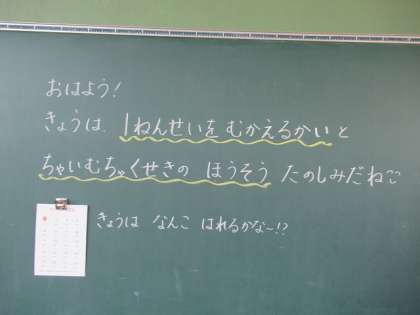 おはよう!
きょうは、1ねんせいを むかえるかいと
ちゃいむちゃくせきの ほうそう たのしみだね
きょうは なんこ はれるかなー!?